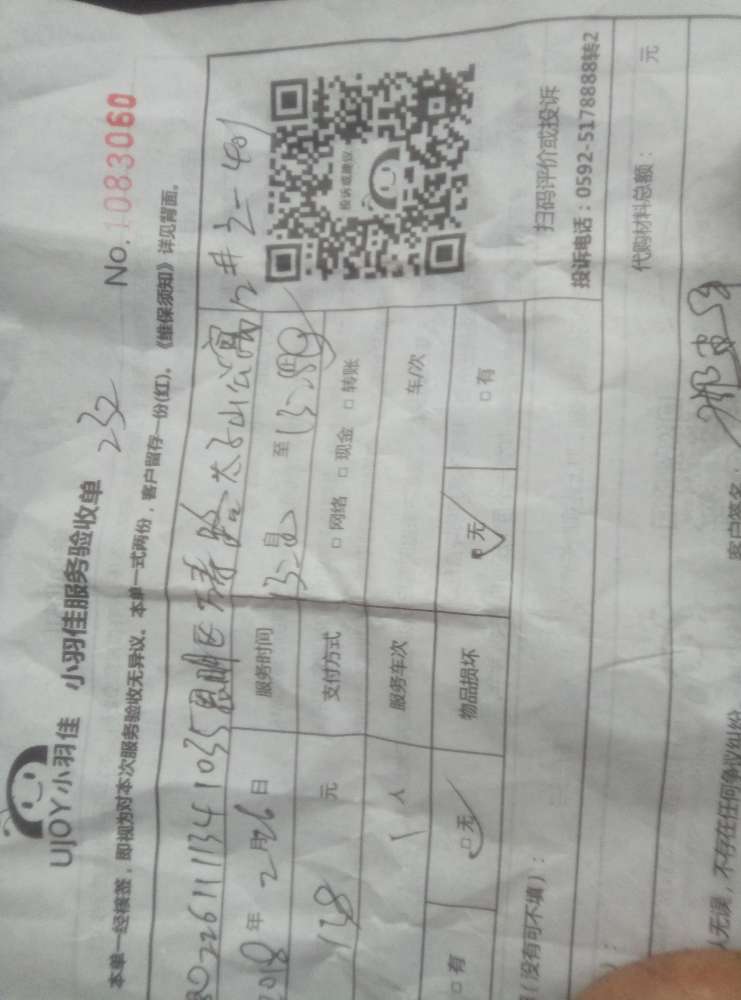 UJOY小羽佳 小羽佳服务验收单
232
No.1083060
本单一经核签，即视为对本次服务验收无异议。本单一式两份，客户留存一份(红)。《维保须知》详见背面。
80226111341035 思明区 太子山公寓 2-401
2018 年 2月26日 服务时间 至
138 元 支付方式 □ 网络 □ 现金 □ 转账
1 人 服务车次 车/次
□ 有 □ 无 物品损坏 □ 无 □ 有
投诉或建议
扫码评价或投诉
投诉电话：0592-5178888转2
（没有可不填）：
代购材料总额： 元
人无误，不存在任何争议纠纷
客户签名：